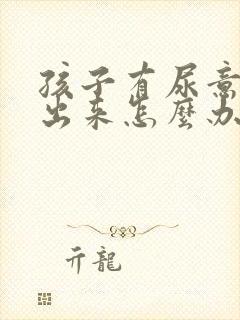 孩子有尿意
出来怎麽办
亓龍